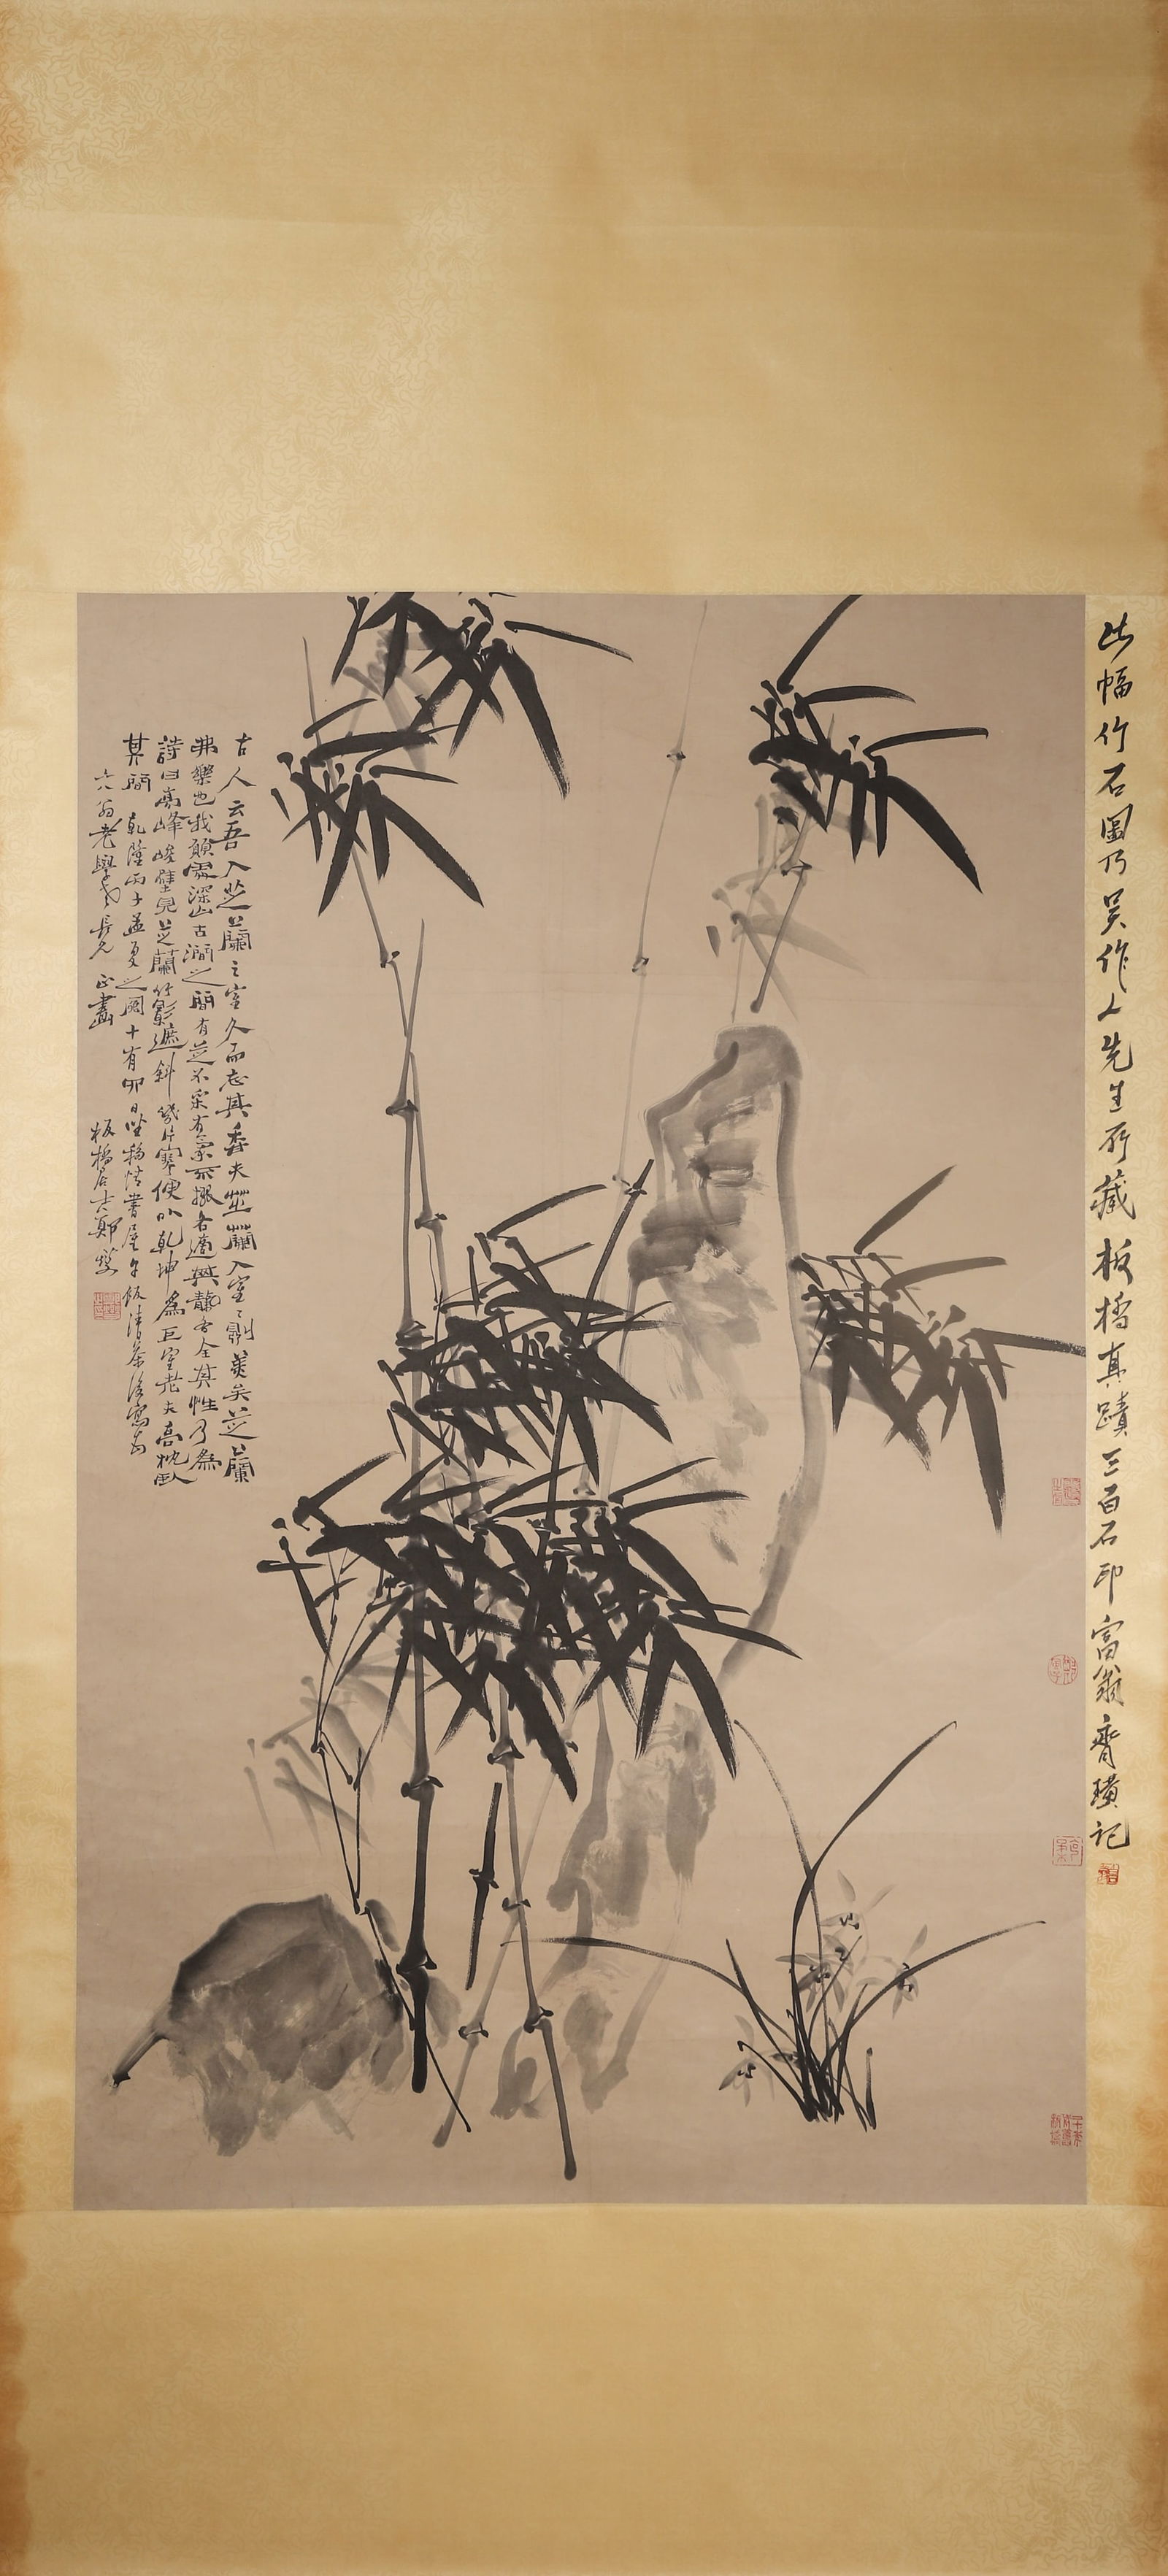 此幅竹石圖乃吴作人先生所藏板橋真蹟三百石印富翁齊璜記
古人云吾入芝蘭之室久而忘其香夫芝蘭入室室則美矣芝蘭
弗樂也我願居深山古澗之間有芝不采有蘭不掇各適其天各全其性乃為
詩曰高峰峻壁見芝蘭竹影遮斜幾片寒便以乾坤為巨室老夫高枕臥
其間 乾隆丙子孟夏之閏十有
六翁老學 長兄 正畫
板橋居士鄭燮